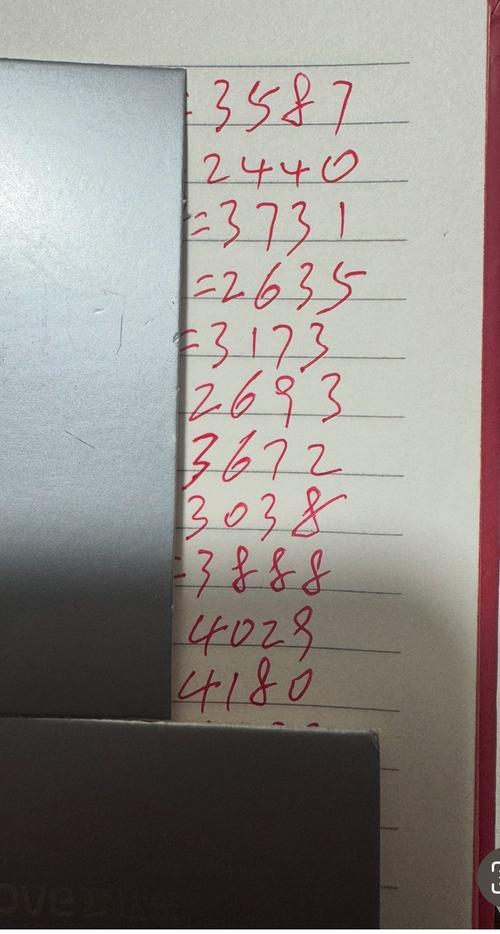 =3587
2440
=3731
=2635
=3173
2693
3672
3038
=3888
4029
4180